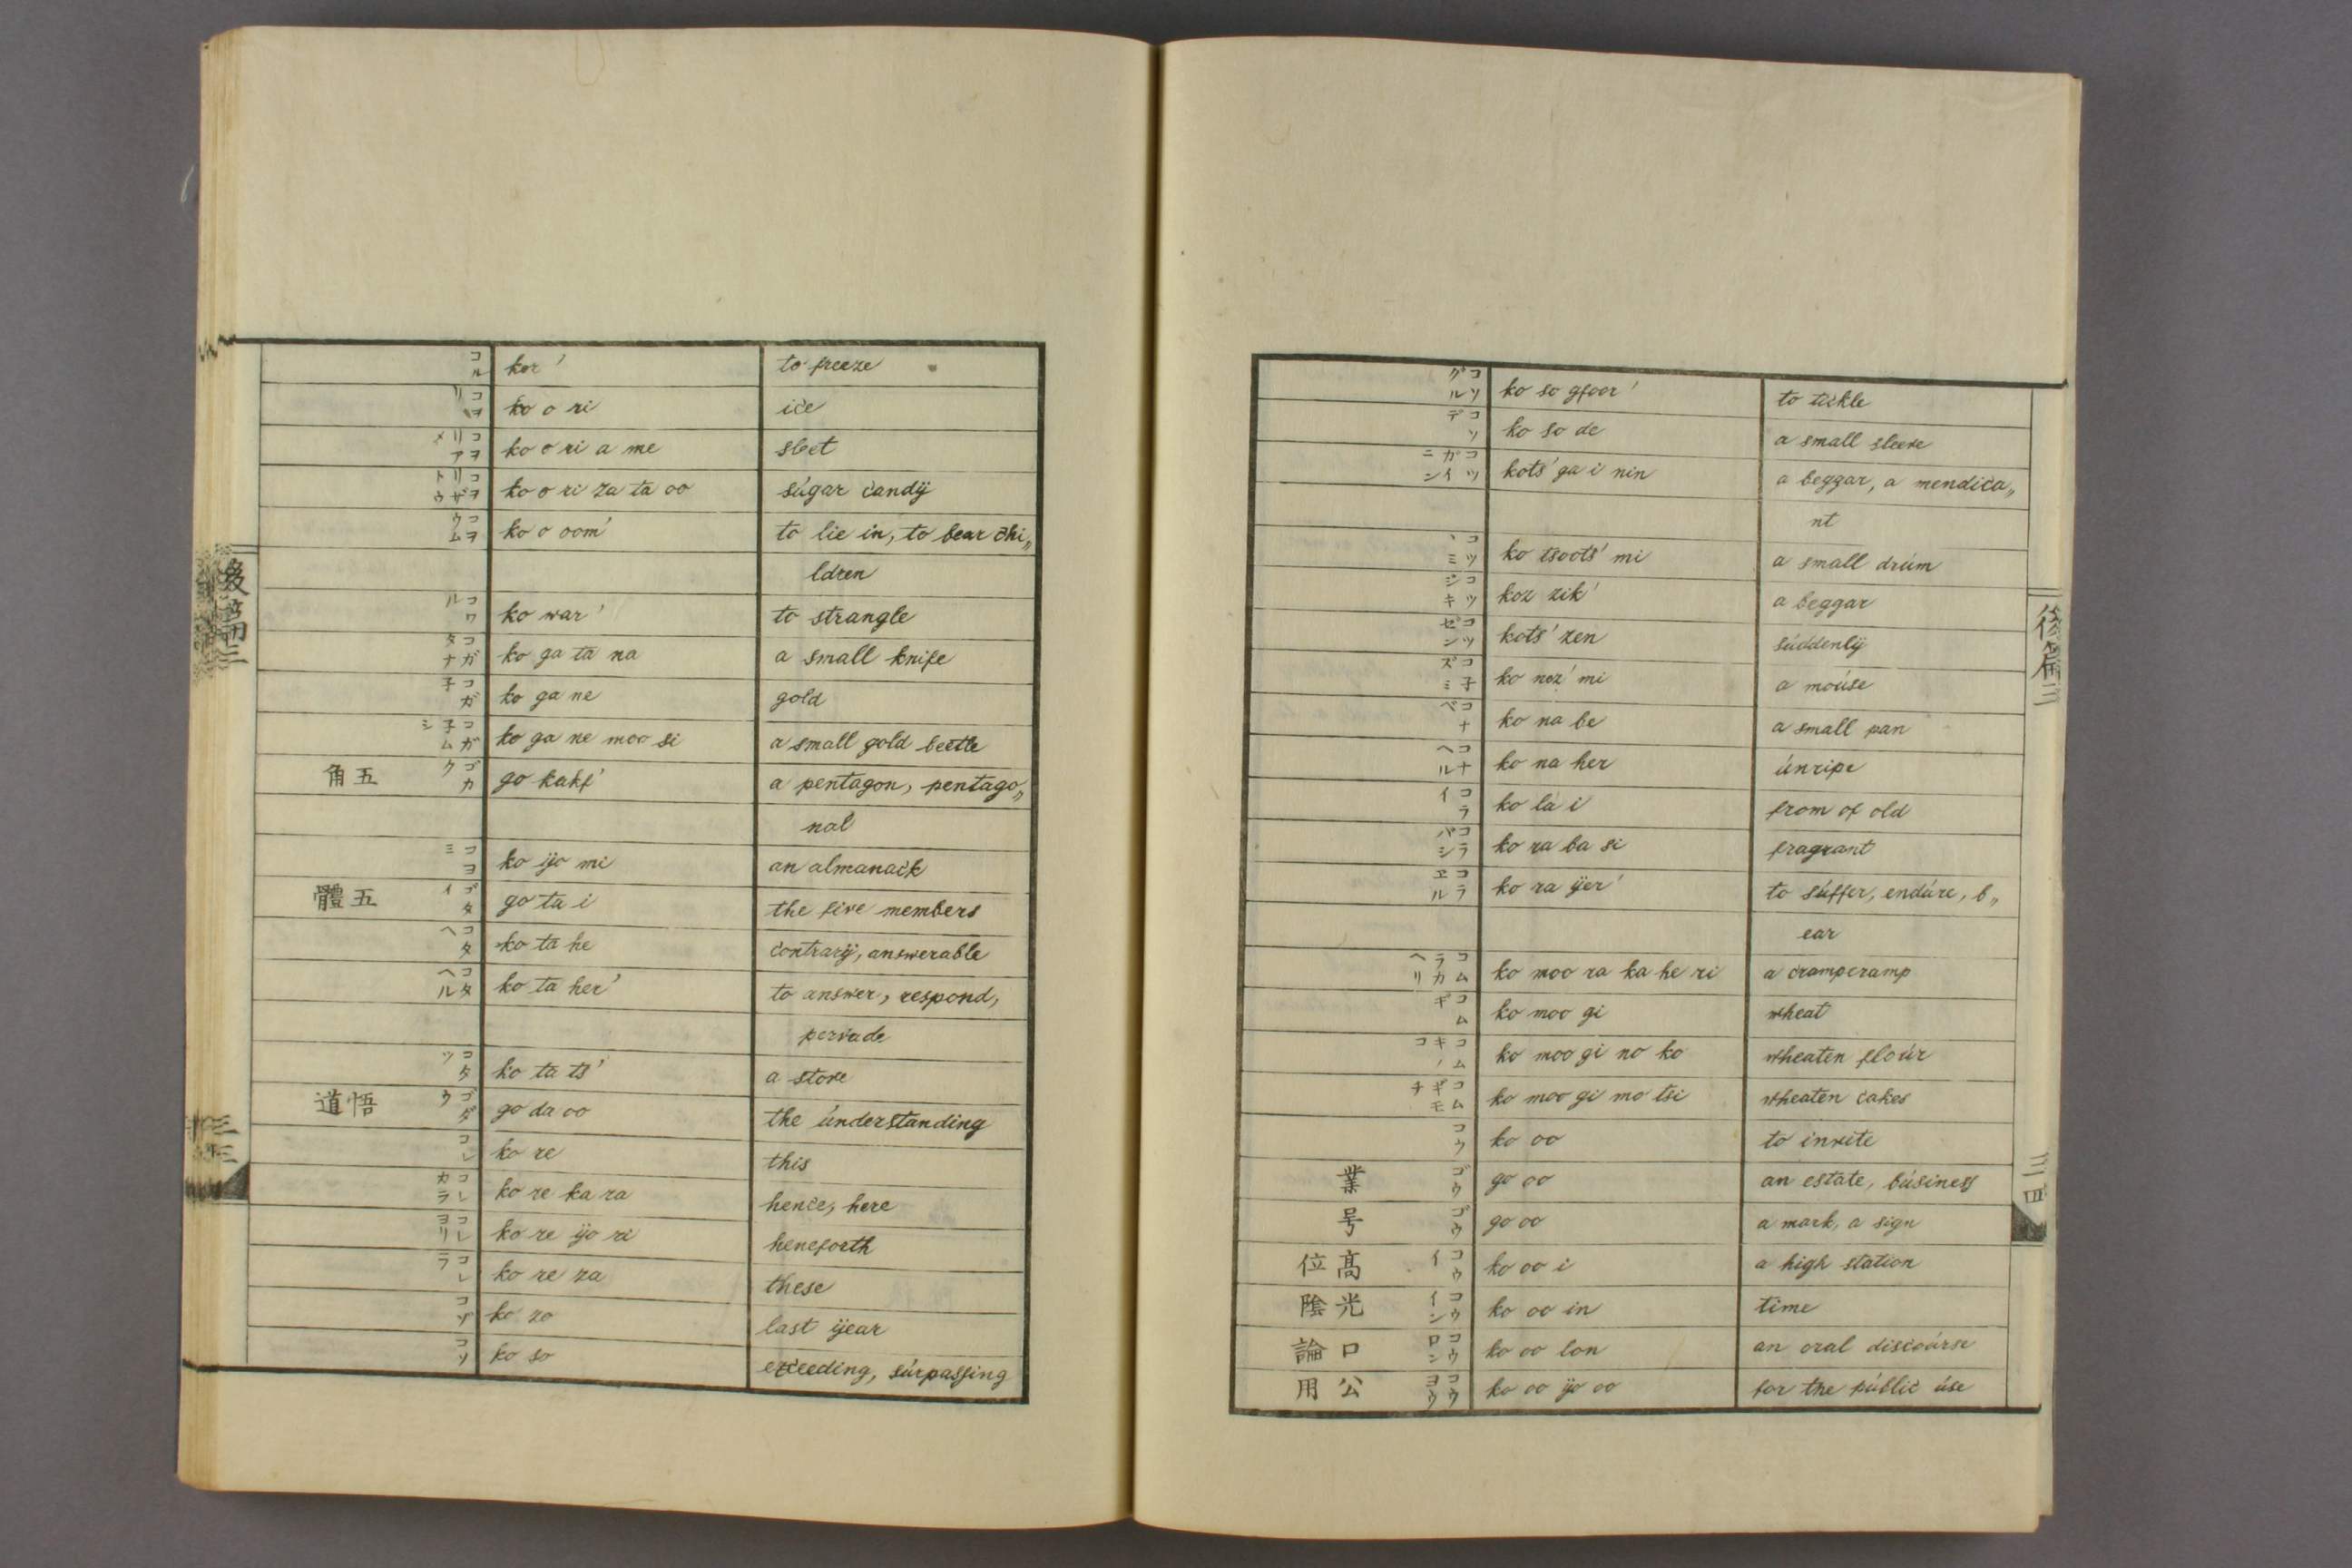 コル kor' to freeze
コヲリ ko o ri ice
コヲリアメ ko o ri a me sleet
コヲリザトウ ko o ri za ta oo súgar candÿ
コヲウム ko o oom' to lie in, to bear chi„
ldren
コワル ko war' to strangle
コガタナ ko ga ta na a small knife
コガ子 ko ga ne gold
コガ子ムシ ko ga ne moo si a small gold beetle
五角 ゴカク go kakf' a pentagon, pentago„
nal
コヨミ ko ijo mi an almanack
五體 ゴタイ go ta i the five members
コタヘ ko ta he contrarÿ, answerable
コタヘル ko ta her' to answer, respond,
pervade
コタツ ko ta ts' a stove
悟道 ゴダウ go da oo the únderstanding
コレ ko re this
コレカラ ko re ka ra hence, here
コレヨリ ko re ijo ri heneforth
コレラ ko re ra these
コゾ ko zo last ÿear
コソ ko so exceeding, súrpassing
後篇 三
コソグル ko so gfoor' to tickle
コソデ ko so de a small sleeve
コツガイニン kots' ga i nin a beggar, a mendica„
nt
コツヽミ ko tsoots' mi a small drúm
コツジキ koz zik' a beggar
コツゼン kots' zen súddenlÿ
コ子ズミ ko nez' mi a moúse
コナベ ko na be a small pan
コナヘル ko na her únripe
コライ ko la i from of old
コラバシ ko ra ba si fragrant
コラヱル ko ra ÿer' to súffer, endúre, b„
ear
コムラカヘリ ko moo ra ka he ri a crampcramp
コムギ ko moo gi wheat
コムギノコ ko moo gi no ko wheaten floúr
コムギモチ ko moo gi mo tsi wheaten cakes
コウ ko oo to invite
業 ゴウ go oo an estate, búsiness
号 ゴウ go oo a mark, a sign
髙位 コウイ ko oo i a high station
光陰 コウイン ko oo in time
口論 コウロン ko oo lon an oral discoúrse
公用 コウヨウ ko oo ijo oo for the públic úse